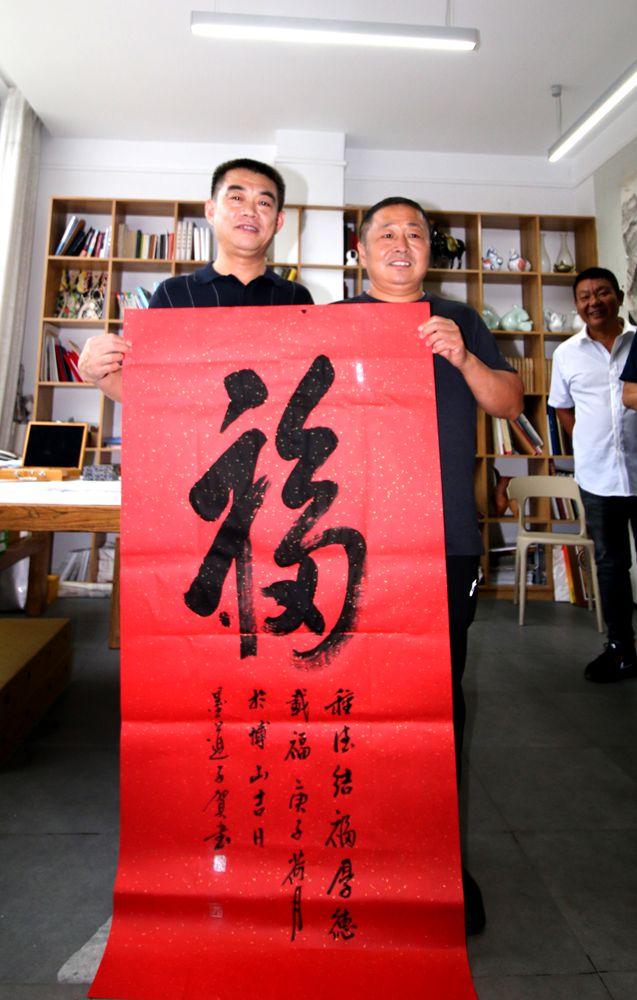 福
種德结福厚德
載福庚子荷月
於博山吉日
墨道子贺书